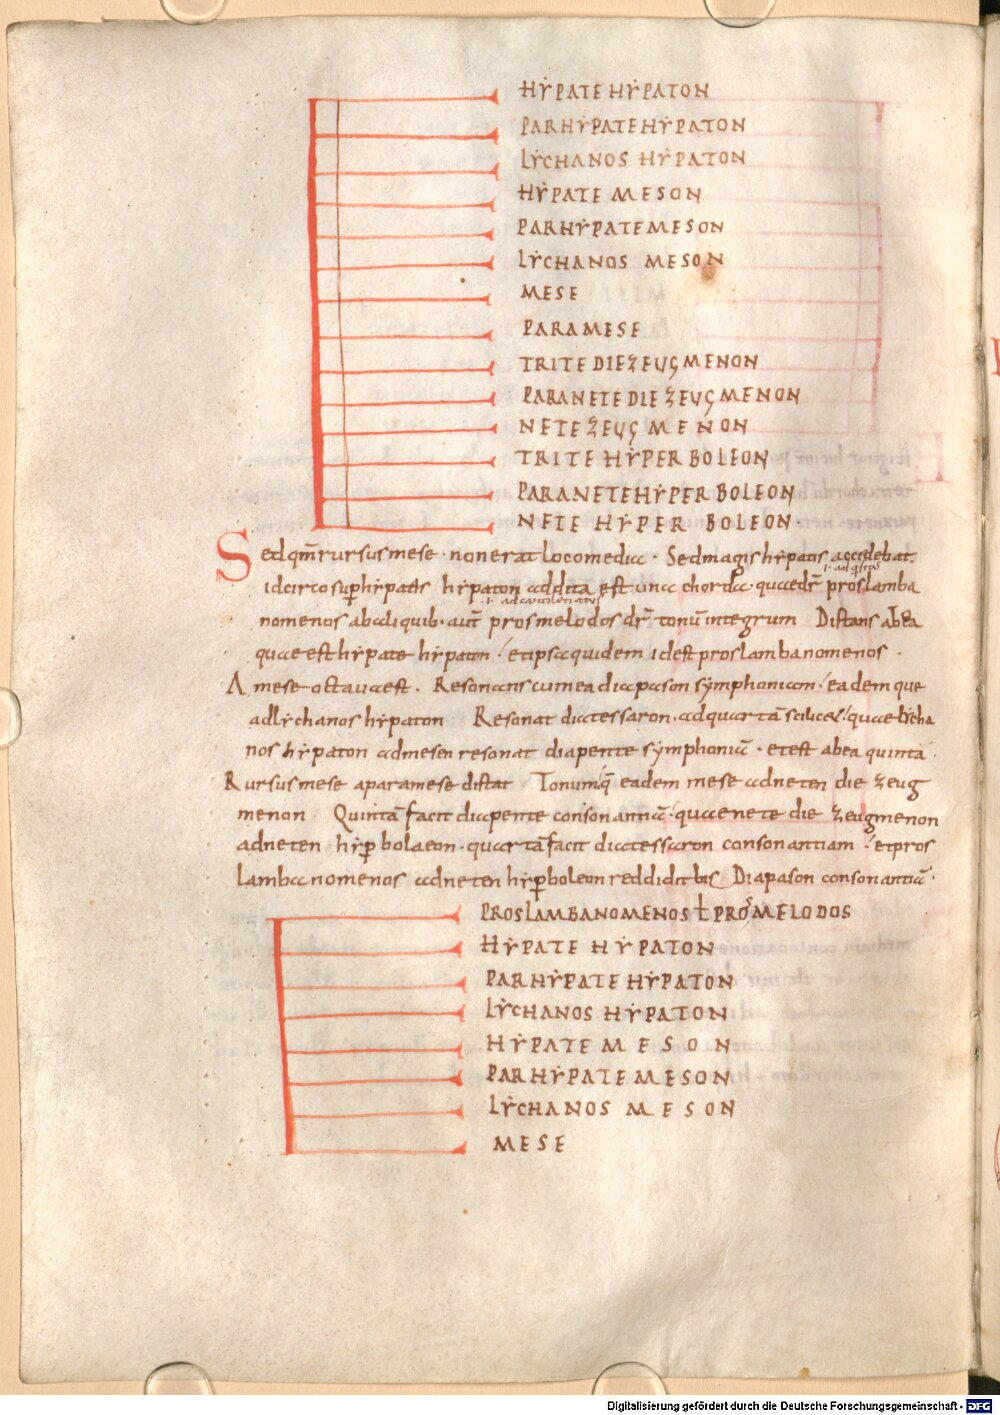 HẎPATE HẎPATON
PARHẎPATE HẎPATON
LẎCHANOS HẎPATON
HẎPATE MESON
PARHẎPATE MESON
LẎCHANOS MESON
MESE
PARAMESE
TRITE DIEZEUGMENON
PARANETE DIEZEUGMENON
NETE ZEUGMENON
TRITE HẎPERBOLEON
PARANETE HẎPERBOLEON
NETE HẎPERBOLEON·
Sed qm̄ rursus mese · non erat loco media · Sed magis hẏpatis accidebat.
.i. adq̇situs
idcirco sup̄ hẏpates hẏpaton addita est una chorda · quae dr̄ proslamba
.i. ad cantilenam
nomenos ab aliquib· aut̄ prosmelodos dr̄ tonū integrum Distans ab ea
quae est hẏpate hẏpaton · et ipsa quidem idest proslambanomenos ·
A mese octava est · Resonans cum ea diapason sẏmphoniam · eademque
ad lẏchanos hẏpaton Resonat diatessaron · ad quartā scilicet · quae lẏcha
nos hẏpaton ad mesen resonat diapente sẏmphoniā · et est ab ea quinta ·
Rursus mese a paramese distat Tonum · q̄ eadem mese ad neten die zeug
menon Quintā facit diapente consonantiā · quae nete die zeugmenon
ad neten hẏp̄bolaeon · quartā facit diatessaron consonantiam · et pros
lambanomenos ad neten hẏp̄boleon reddidit bis Diapason consonantiā ·
PROSLAMBANOMENOS ł PROSMELODOS
HẎPATE HẎPATON
PARHẎPATE HẎPATON
LẎCHANOS HẎPATON
HẎPATE MESON
PARHẎPATE MESON
LẎCHANOS MESON
MESE
Digitalisierung gefördert durch die Deutsche Forschungsgemeinschaft - DFG